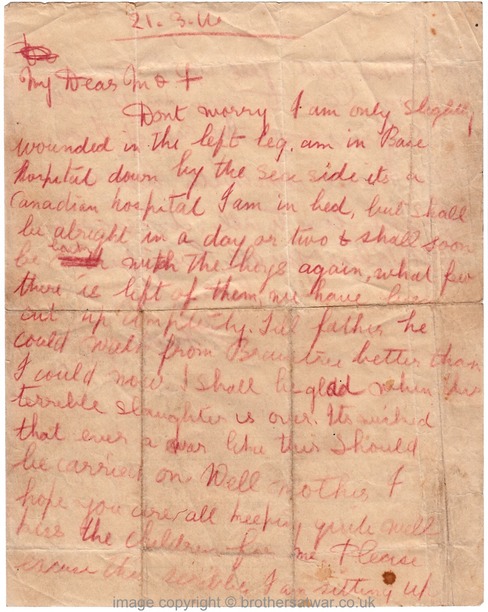 21-3-16
My Dear M & F
Dont worry I am only slightly
wounded in the left leg. am in Base
Hospital down by the sea side its a
Canadian hospital I am in bed, but shall
be alright in a day or two & shall soon
be back with the boys again, what few
there is left of them, we have been
cut up completly. Tell father he
could walk from Braintree better than
I could now. I shall be glad when this
terrible slaughter is over. Its wicked
that ever a war like this should
be carried on. Well mother I
hope you are all keeping quite well
kiss the children for me Please
excuse this scribble I am sitting up
image copyright © brothersatwar.co.uk